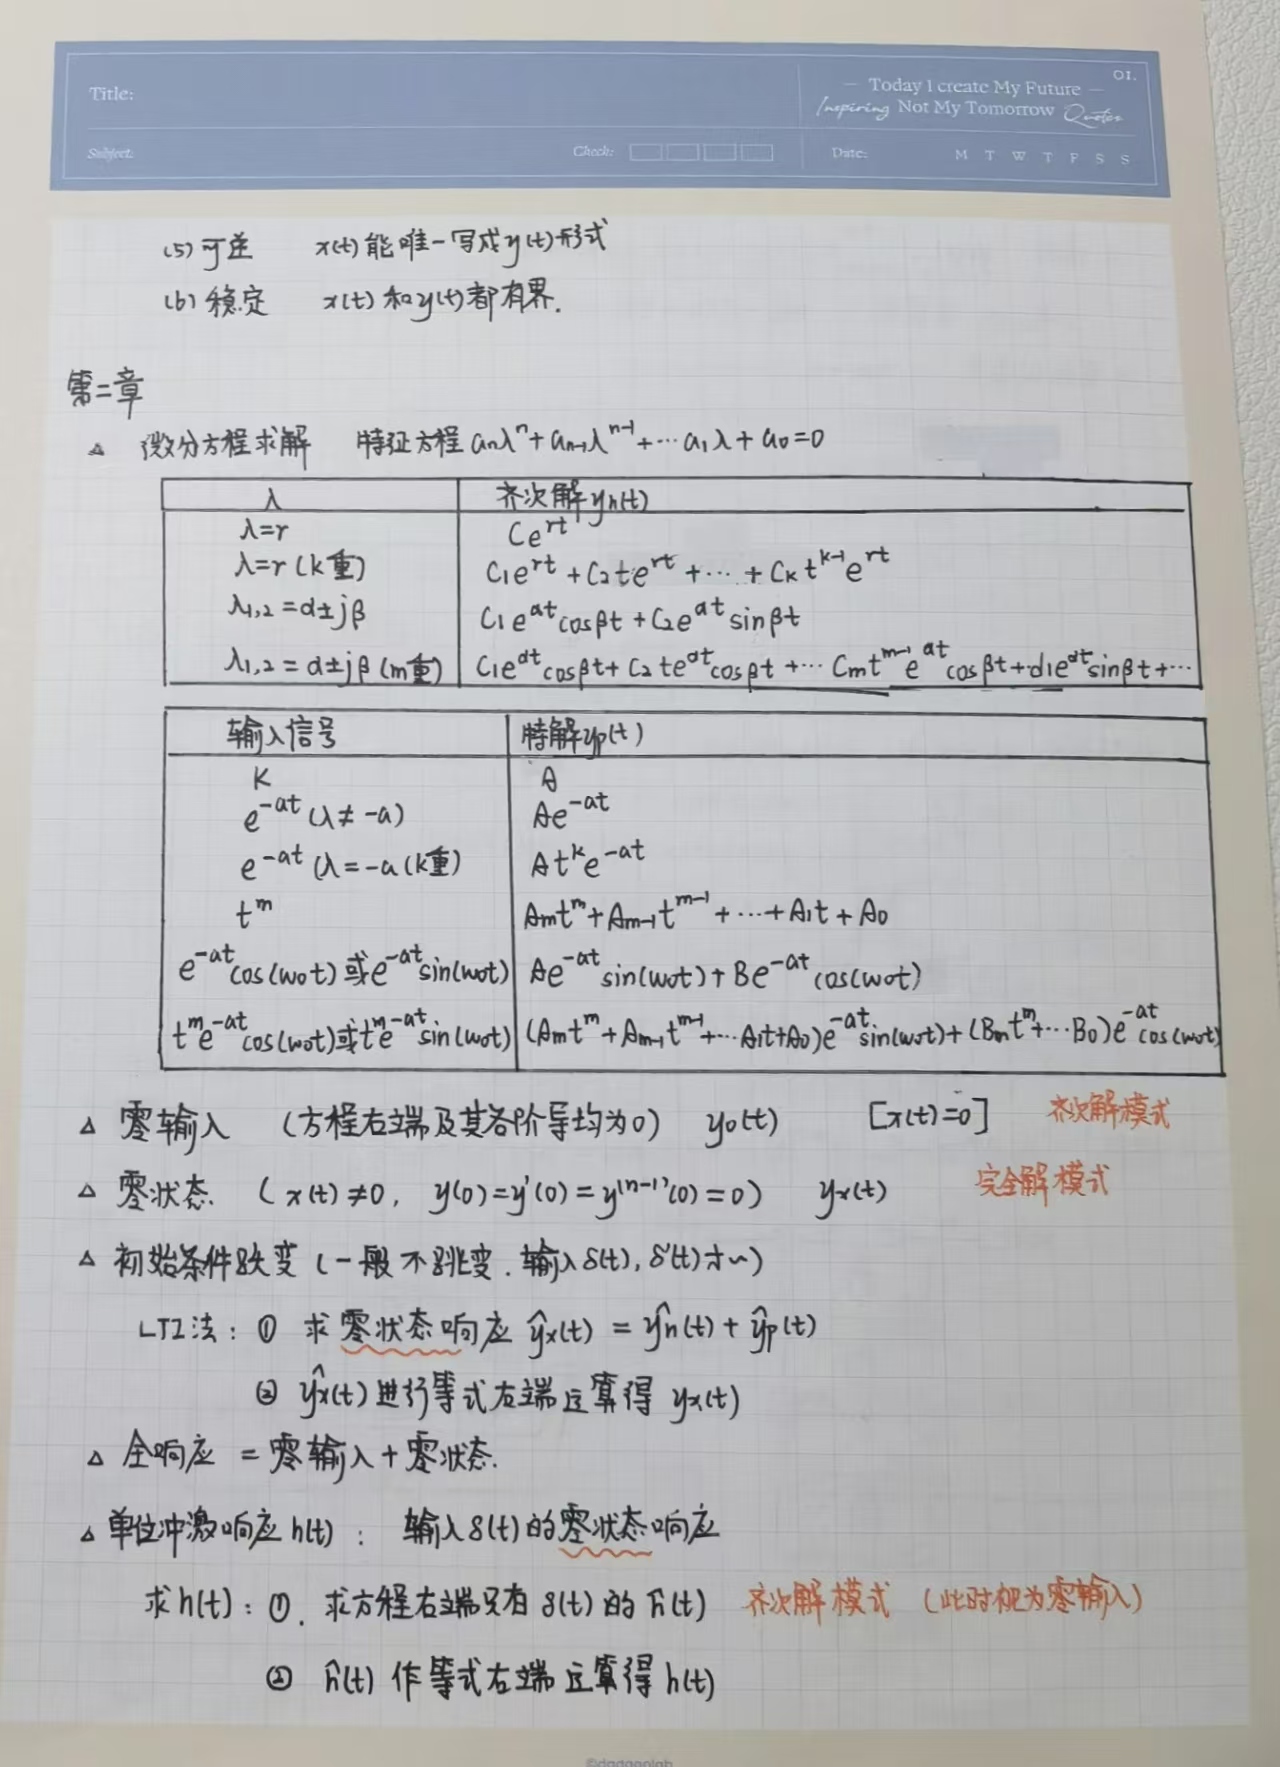 Title:
01.
— Today I create My Future —
Inspiring Not My Tomorrow Quotes
Subject:
Check:
Date:
M T W T F S S
(5) 可逆 x(t)能唯一写成y(t)形式
(6) 稳定 x(t)和y(t)都有界.
第二章
△ 微分方程求解 特征方程 anλ^n + an-1λ^n-1 + … a1λ + a0 = 0
λ 齐次解yh(t)
λ=r Ce^rt
λ=r (k重) C1e^rt + C2te^rt + … + Ck t^k-1 e^rt
λ1,2 = α±jβ C1e^αt cosβt + C2e^αt sinβt
λ1,2 = α±jβ (m重) C1e^αt cosβt + C2 te^αt cosβt + … Cmt^m-1 e^αt cosβt + d1e^αt sinβt + …
输入信号 特解yp(t)
K A
e^-at (λ ≠ -a) Ae^-at
e^-at (λ = -a (k重) At^k e^-at
t^m Amt^m + Am-1t^m-1 + … + A1t + A0
e^-at cos(ω0t) 或 e^-at sin(ω0t) Ae^-at sin(ω0t) + Be^-at cos(ω0t)
t^m e^-at cos(ω0t) 或 t^m e^-at sin(ω0t) (Amt^m + Am-1t^m-1 + … A1t + A0)e^-at sin(ω0t) + (Bmt^m + … B0)e^-at cos(ω0t)
△ 零输入 (方程右端及其各阶导均为0) y0(t) [x(t)=0] 齐次解模式
△ 零状态 (x(t)≠0, y(0)=y'(0)=y^(n-1)(0)=0) yx(t) 完全解模式
△ 初始条件跃变 (一般不跳变. 输入δ(t), δ'(t)才~)
LTI法: ① 求零状态响应 ŷx(t) = ŷh(t) + ŷp(t)
② ŷx(t) 进行等式右端运算得 yx(t)
△ 全响应 = 零输入 + 零状态.
△ 单位冲激响应h(t) : 输入δ(t)的零状态响应
求h(t): ①. 求方程右端只有δ(t)的ĥ(t) 齐次解模式 (此时视为零输入)
② ĥ(t) 作等式右端运算得h(t)